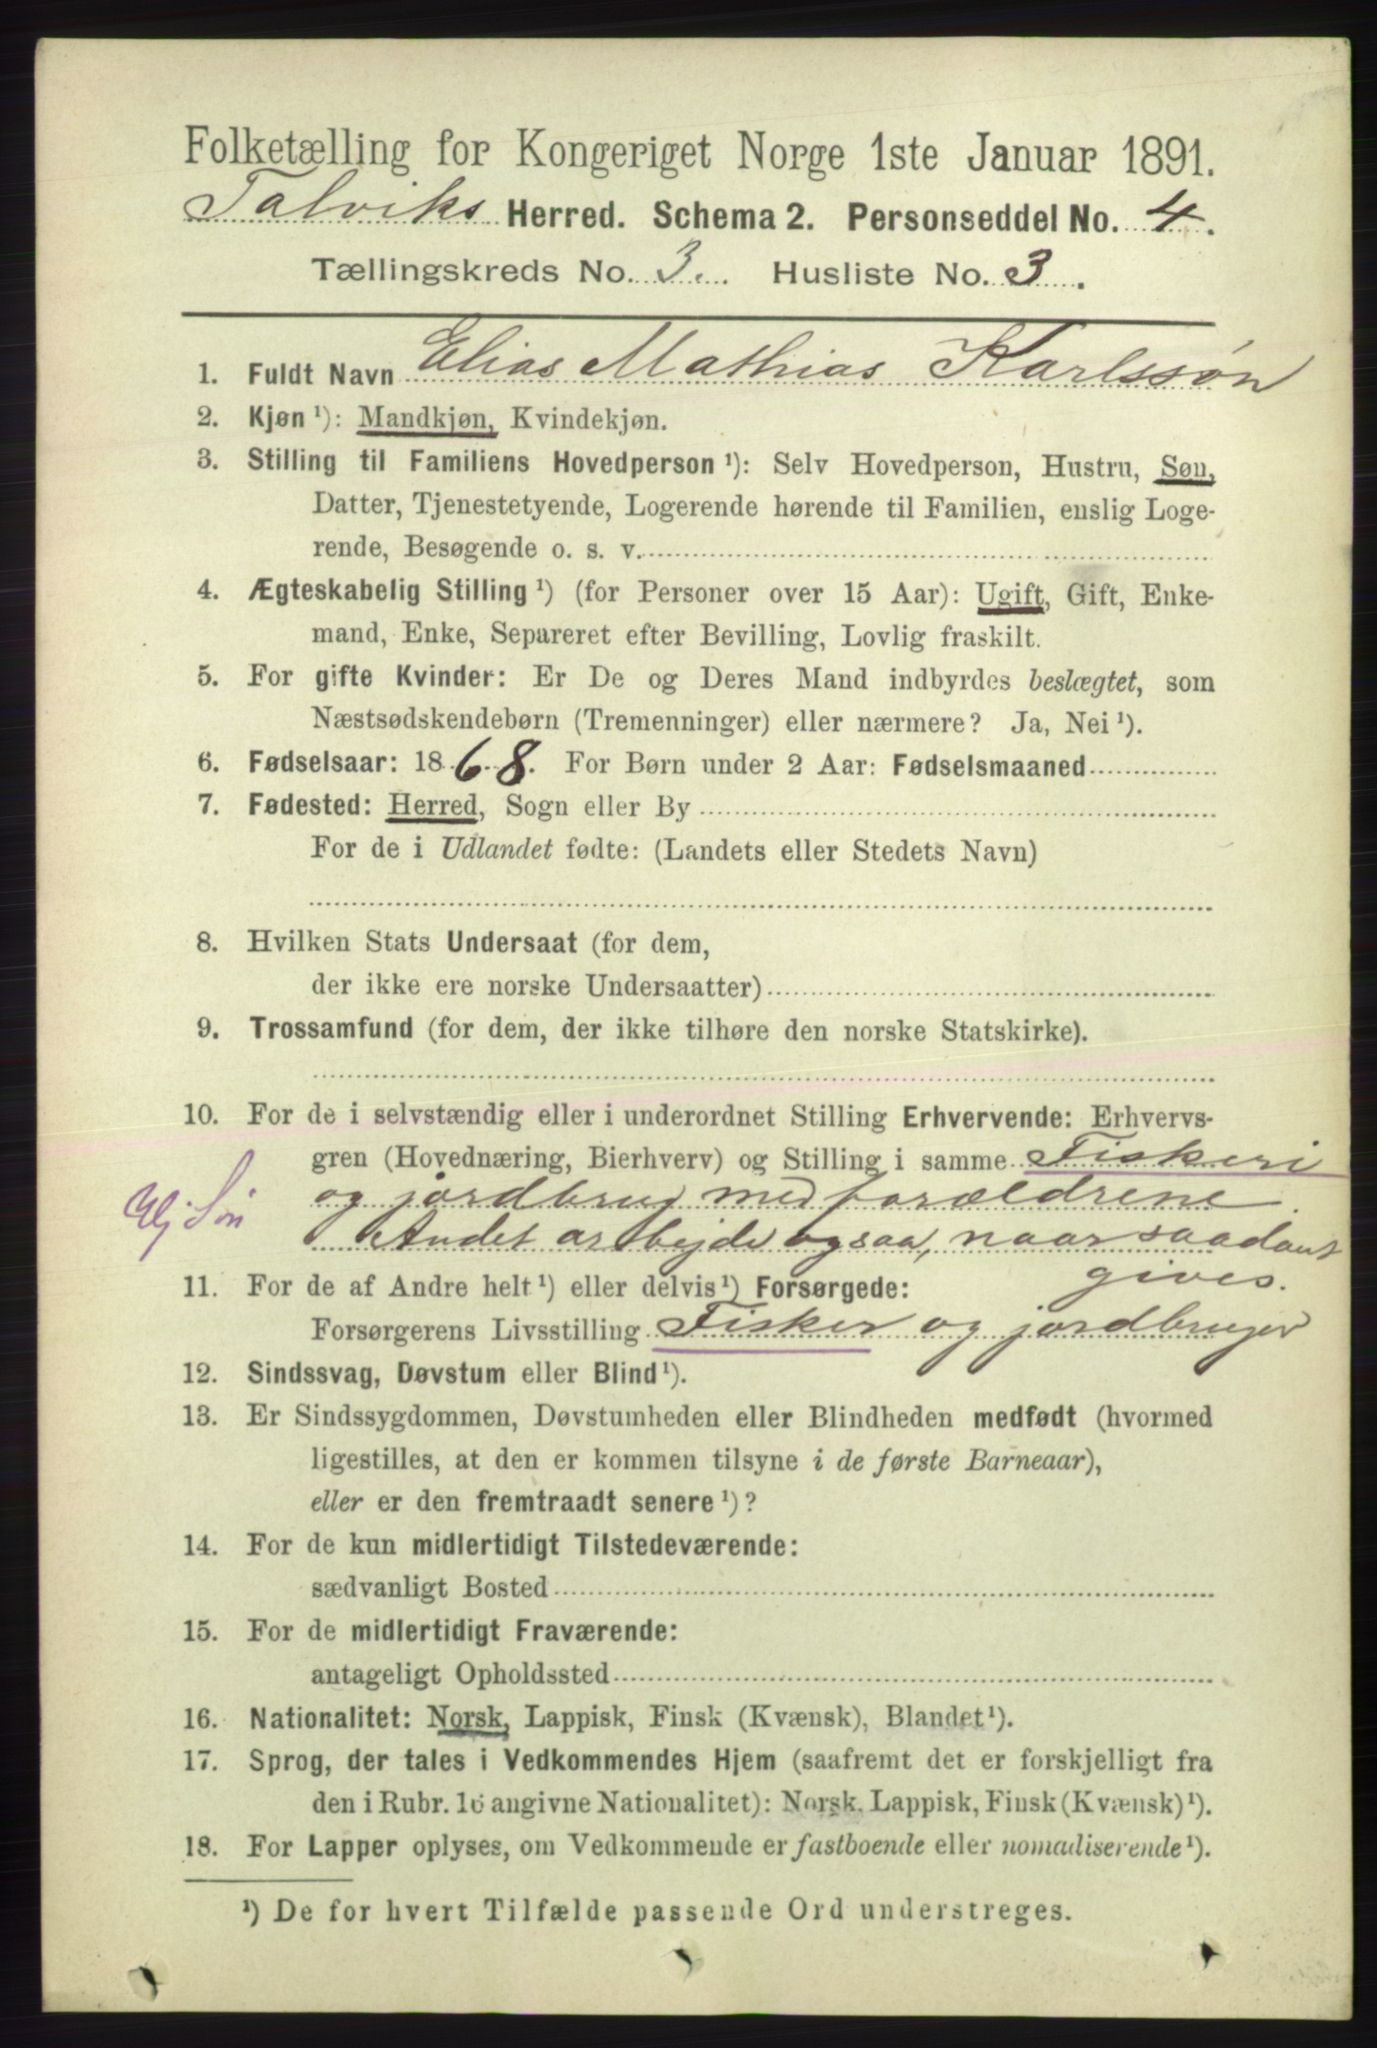 Folketælling for Kongeriget Norge 1ste Januar 1891.
Talviks Herred. Schema 2. Personseddel No. 4.
Tællingskreds No. 3. Husliste No. 3.
1. Fuldt Navn Elias Mathias Karlssøn
2. Kjøn¹): Mandkjøn, Kvindekjøn.
3. Stilling til Familiens Hovedperson¹): Selv Hovedperson, Hustru, Søn,
Datter, Tjenestetyende, Logerende hørende til Familien, enslig Loge-
rende, Besøgende o. s. v.
4. Ægteskabelig Stilling¹) (for Personer over 15 Aar): Ugift, Gift, Enke-
mand, Enke, Separeret efter Bevilling, Lovlig fraskilt.
5. For gifte Kvinder: Er De og Deres Mand indbyrdes beslægtet, som
Næstsødskendebørn (Tremenninger) eller nærmere? Ja, Nei¹).
6. Fødselsaar: 1868. For Børn under 2 Aar: Fødselsmaaned
7. Fødested: Herred, Sogn eller By
For de i Udlandet fødte: (Landets eller Stedets Navn)
8. Hvilken Stats Undersaat (for dem,
der ikke ere norske Undersaatter)
9. Trossamfund (for dem, der ikke tilhøre den norske Statskirke).
10. For de i selvstændig eller i underordnet Stilling Erhvervende: Erhvervs-
gren (Hovednæring, Bierhverv) og Stilling i samme Fiskeri
og jordbrug med forældrene.
Andet arbejde ogsaa, naar saadant
gives.
Hj Søn
11. For de af Andre helt¹) eller delvis¹) Forsørgede:
Forsørgerens Livsstilling Fisker og jordbruger
12. Sindssvag, Døvstum eller Blind¹).
13. Er Sindssygdommen, Døvstumheden eller Blindheden medfødt (hvormed
ligestilles, at den er kommen tilsyne i de første Barneaar),
eller er den fremtraadt senere¹)?
14. For de kun midlertidigt Tilstedeværende:
sædvanligt Bosted
15. For de midlertidigt Fraværende:
antageligt Opholdssted
16. Nationalitet: Norsk, Lappisk, Finsk (Kvænsk), Blandet¹).
17. Sprog, der tales i Vedkommendes Hjem (saafremt det er forskjelligt fra
den i Rubr. 16 angivne Nationalitet): Norsk, Lappisk, Finsk (Kvænsk)¹).
18. For Lapper oplyses, om Vedkommende er fastboende eller nomadiserende¹).
¹) De for hvert Tilfælde passende Ord understreges.